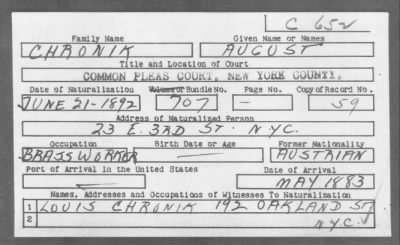 C 652
Family Name Given Name or Names
CHRONIK AUGUST
Title and Location of Court
COMMON PLEAS COURT, NEW YORK COUNTY.
Date of Naturalization Volume or Bundle No. Page No. Copy of Record No.
JUNE 21-1892 707 — 59
Address of Naturalized Person
23 E. 3RD ST. N.Y.C.
Occupation Birth Date or Age Former Nationality
BRASSWORKER — AUSTRIAN
Port of Arrival in the United States Date of Arrival
— MAY 1883
Names, Addresses and Occupations of Witnesses To Naturalization
1 LOUIS CHRONIK 192 OAKLAND ST.
2 N.Y.C.